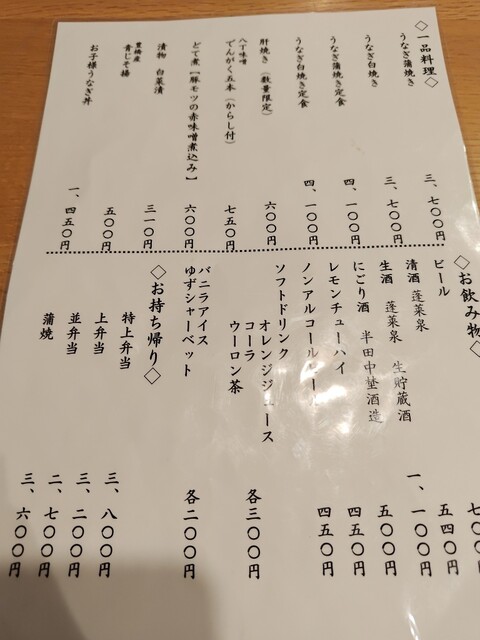 ◇一品料理◇
うなぎ蒲焼き 三、七〇〇円
うなぎ白焼き 三、七〇〇円
うなぎ蒲焼き定食 四、一〇〇円
うなぎ白焼き定食 四、一〇〇円
肝焼き（数量限定） 六〇〇円
八丁味噌
でんがく五本（からし付） 七五〇円
どて煮【豚モツの赤味噌煮込み】 六〇〇円
漬物 白菜漬 三一〇円
豊橋産
青じそ揚 五〇〇円
お子様うなぎ丼 一、四五〇円
◇お飲み物◇
ビール 七〇〇円
清酒 蓬莱泉 五四〇円
生酒 蓬莱泉 生貯蔵酒 一、一〇〇円
にごり酒 半田中埜酒造 五〇〇円
レモンチューハイ 四五〇円
ノンアルコールビール 四五〇円
ソフトドリンク
オレンジジュース
コーラ
ウーロン茶
各三〇〇円
バニラアイス
ゆずシャーベット
各二〇〇円
◇お持ち帰り◇
特上弁当 三、八〇〇円
上弁当 三、二〇〇円
並弁当 二、七〇〇円
蒲焼 三、六〇〇円